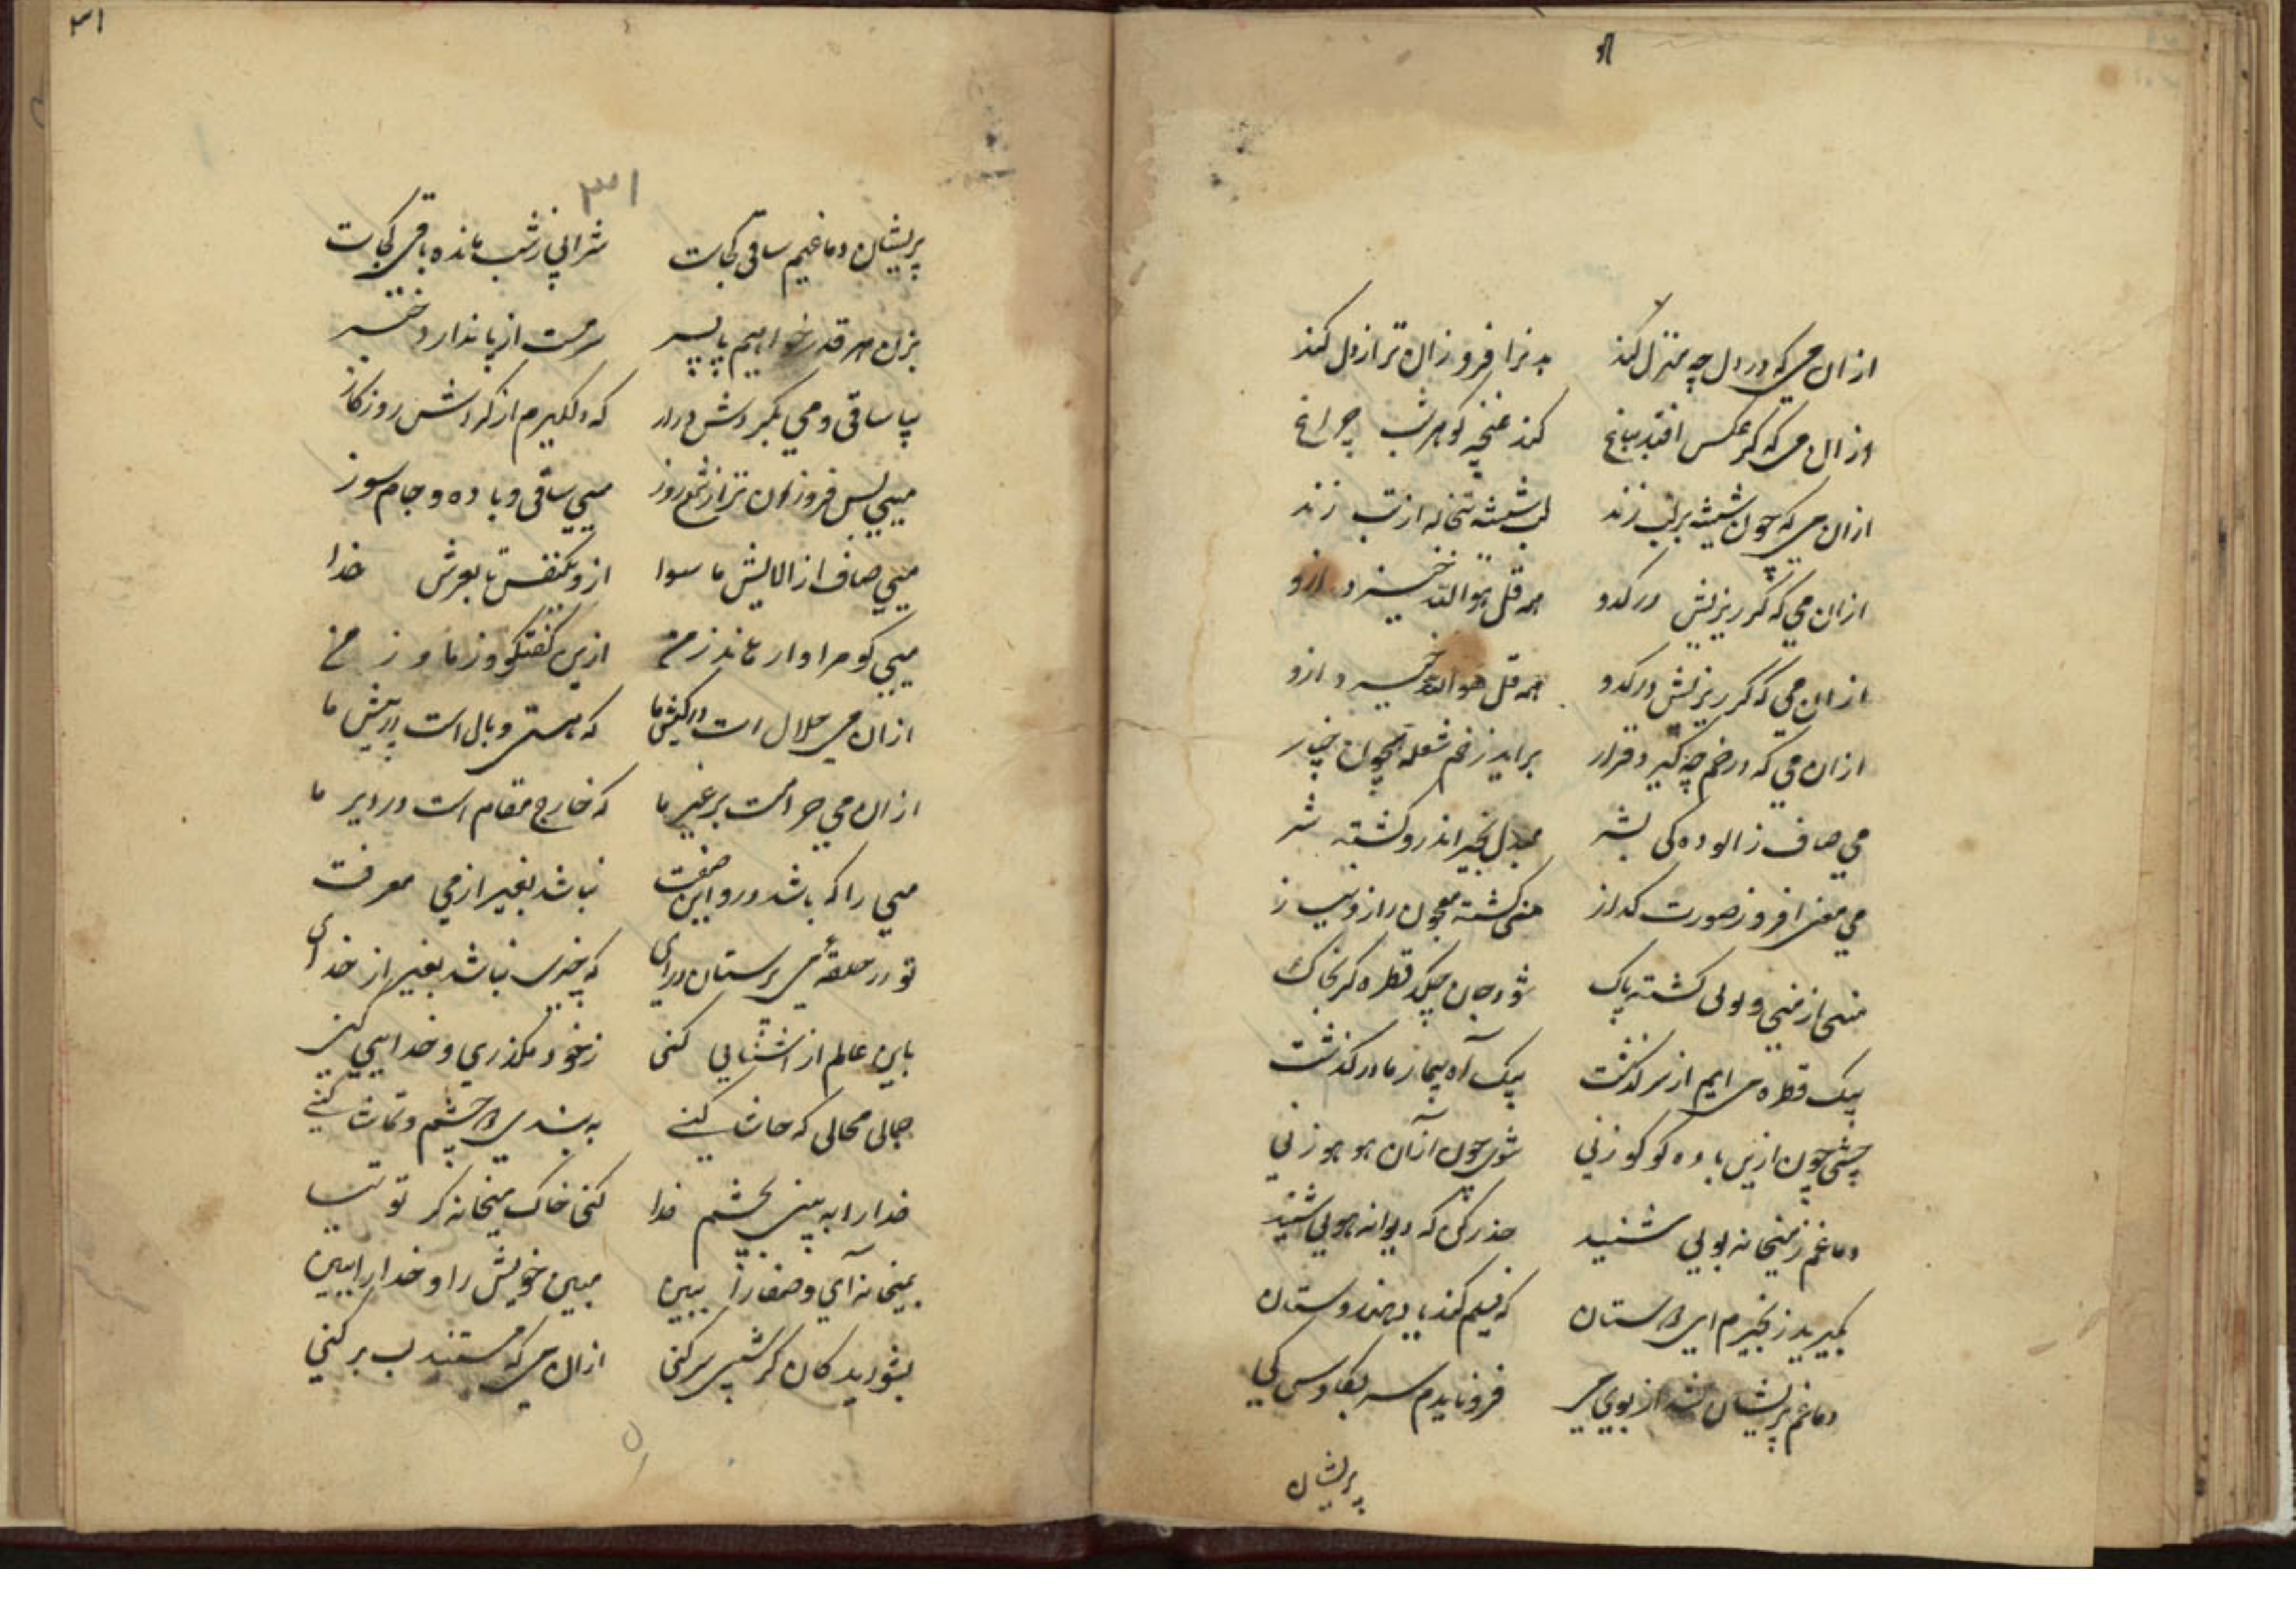 از ان می که در دل چه منزل کند    بدن را فروزان تر از دل کند
از ان می که گر عکس افتد بباغ    کند غنچه گوهر شب چراغ
از ان می که چون شیشه بر لب زند    لب شیشه تنخاله از تب زند
از ان می که گر ریزیش در کدو    همه قل هو الله خیزد ازو
از ان می که گر ریزیش در کدو    همه قل هو الله خیزد ازو
از ان می که در خم چه گیرد قرار    براید ز خم شعله همچون چنار
می صاف ز الوده کی بشر    مبدل بخیر اندرو گشته شر
می معنی افروز صورت گداز    گشته معجون راز و نیاز
منی از منی و لوی گشته پاک    شود جان چکد قطره گر بخاک
بیک قطره می ابم از سر گذشت    بیک آه بیمار ما در گذشت
چشی چون ازین باده کوکو زنی    شوی چون ازآن هو هو زنی
دماغم ز میخانه بویی شنید    حذر کن که دیوانه هویی شنید
بگیرید زنجیرم ای دوستان    که فیلم کند یاد هندوستان
دماغم پریشان شد از بوی می    فرو نایدم سر بکاوس کی
پریشان
۳۱
۳۱
پریشان دماغیم ساقی کجاست    شرابی ز شب مانده باقی کجاست
بزن هر قدر خواهیم پا بسر    سر مست از پا ندارد خبر
بیا ساقی و می بگردش درار    که دلگیرم از گردش روزگار
میی بس فروزان تر از شمع روز    میی ساقی و باده و جام سوز
میی صاف از الایش ما سوا    ازو یکنفس تا بعرش خدا
میی کو مرا وارهاند ز من    ازین گفتگو و ز ما و ز من
از ان می حلال است در کیش ما    که هستی وبال است در پیش ما
از ان می حرامست بر غیر ما    که خارج مقام است در دیر ما
میی را که باشد درو این صفت    نباشد بغیر از می معرفت
تو در حلقهٔ می پرستان درای    که چیزی نباشد بغیر از خدای
باین عالم ار اشنایی کنی    ز خود بگذری و خدایی کنی
جمالی محالی که حاشا کنی    به بندی دو چشم و تماشا کنی
خدا را به بینی بچشم خدا    کنی خاک میخانه گر توتیا
بمیخانه آی و صفا را ببین    مبین خویش را و خدا را ببین
بشوریدگان گر شبی سر کنی    از ان می که مستند لب بر کنی